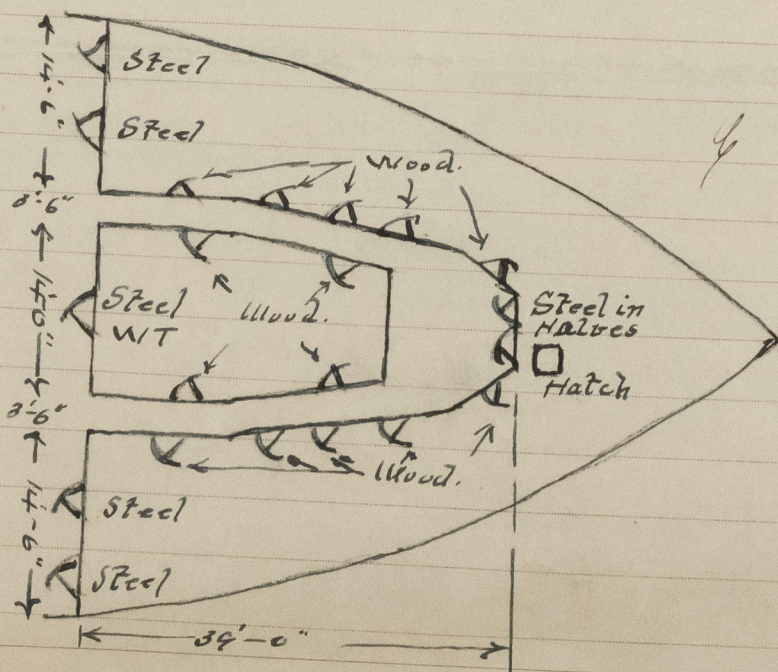 14'-6"
Steel
Steel
Wood.
3'-6"
14'-0"
Steel
W/T
Wood.
Steel in
Halves
Hatch
3'-6"
Wood.
14'-6"
Steel
Steel
39'-0"